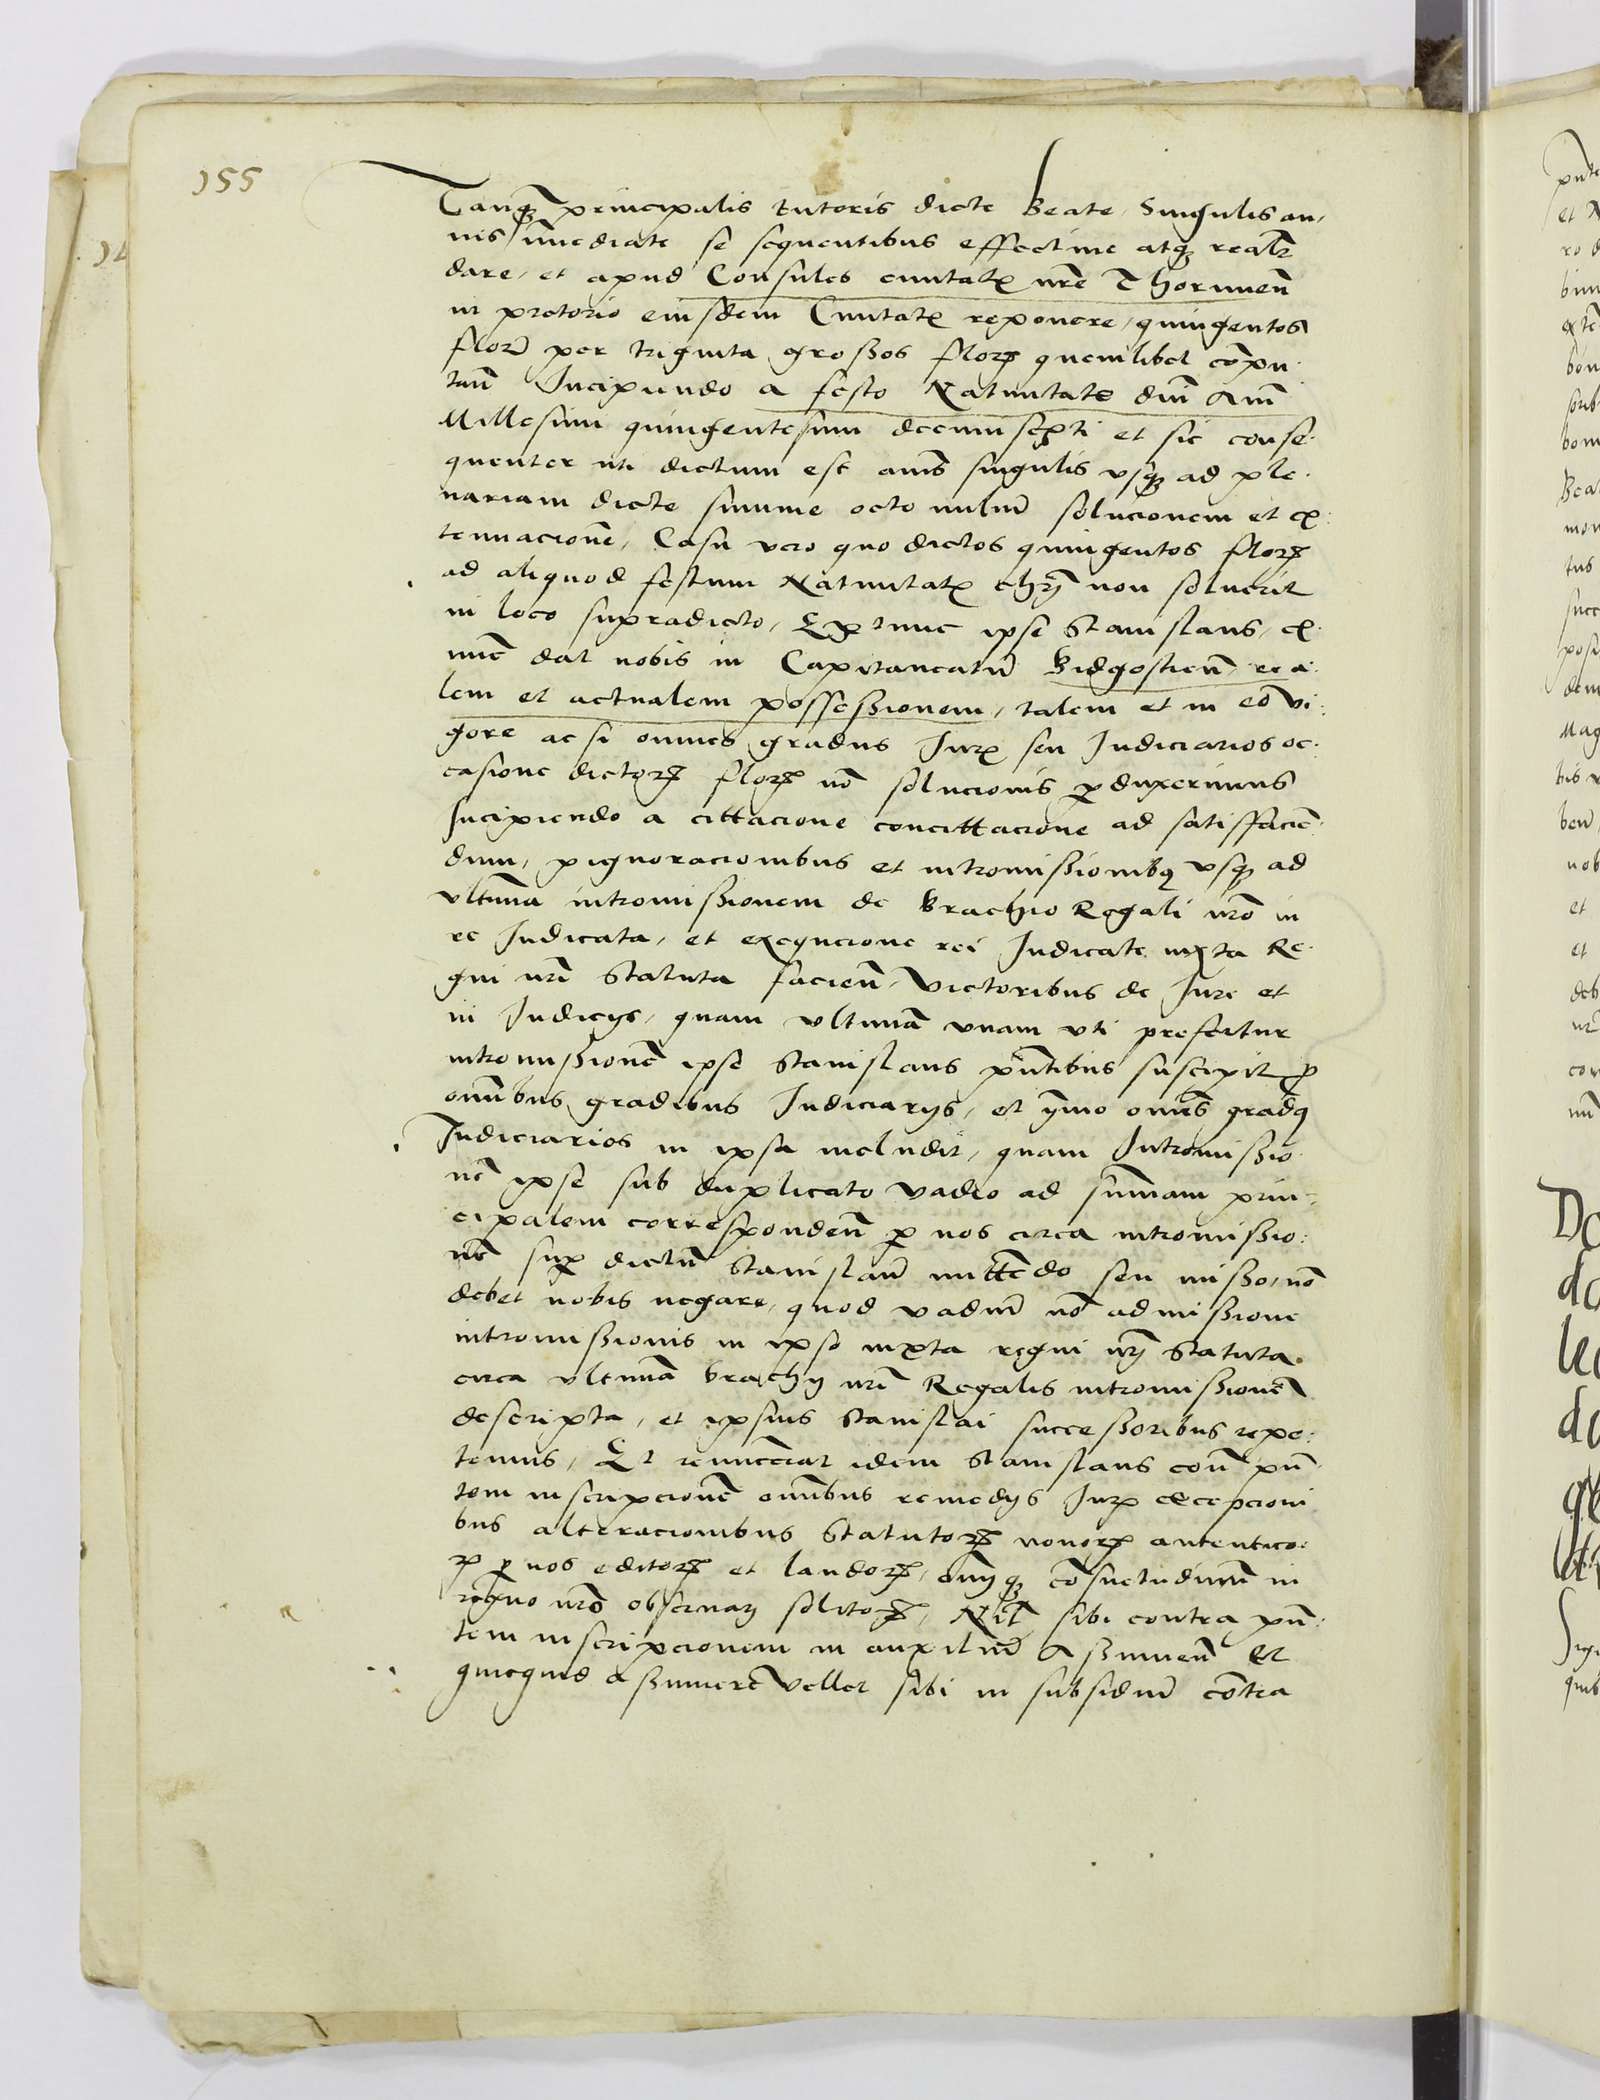 155
Tanqȝ principalis tutoris dicte Beate, Singulis an,
nis im̄ediate se sequentibus effectiue atqȝ realr̄
dare, et apud Consules ciuitatꝭ nr̄e Thorunen̄
in pretorio eiusdem Ciuitatꝭ reponere, quingentos
florē per triginta grossos florꝭ quemlibet cōpu
tan̄ Incipiendo a festo Natiuitatꝭ dn̄i An̄i
Millesimi quingentesimi decimi septi et sic conse
quenter uti dictum est annis singulis vsqȝ ad ple
nariam dicte summe octo miliū solucionem et ex
tenuacionē, Casu vero quo dictos quingentos florꝭ
ad aliquod festum Natiuitatꝭ chrī non soluerit
in loco supradicto, Ex tunc ipse Stanislaus, ex
nunc dat nobis in Capitaneatū Bidgostien̄ rea
lem et actualem possessionem, talem et in eo vi
gore ac si omnes gradus Jurꝭ seu Judiciarios oc
casione dictorꝭ florꝭ nō solucionis ꝑduxerimus
Incipiendo a cittacione concittacione ad satisfacien
dum, pignoracionibus et intromissionibꝫ vsqȝ ad
vltimā intromissionem de Brachio Regali nr̄o in
re Judicata, et execucione rei Judicate iuxta Re
gni nr̄i Statuta facien̄, Victoribus de Jure et
in Judicijs, quam vltimā vnam vti prefertur
intromissionē ipse Stanislaus pn̄tibus suscipit ꝓ
omībus gradibus Judiciarijs, et ymo omēs gradꝫ
Judiciarios in ipsa includit, quam Intromissio
nē ipse sub duplicato vadio ad summam prin
cipalem corresponden̄ ꝑ nos circa intromissio
nē suꝑ dictū Stanislaū mittēdo seu misso, nō
debet nobis negare, quod vadiū nō admissione
intromissionis in ipso iuxta regni nr̄j Statuta
circa vltimā brachij nr̄i Regalis intromissionē
descripta, et ipsius Stanislai successoribus repe
temus, Et renūcciat idem Stanislaus con̄ pn̄
tem inscripcionē omībus remedijs Jurꝭ excepcioni
bus alteracionibus Statutorꝭ nouorꝭ autentico
rꝭ ꝑ nos editorꝭ et laudorꝭ, omīqȝ cōsuetudinū in
regno nr̄o obseruarj solitorꝭ, Nil sibi contra pn̄
tem inscripcionem in auxiliū Assumen̄ Et
quicquid assumere vellet sibi in subsidiū cōtra